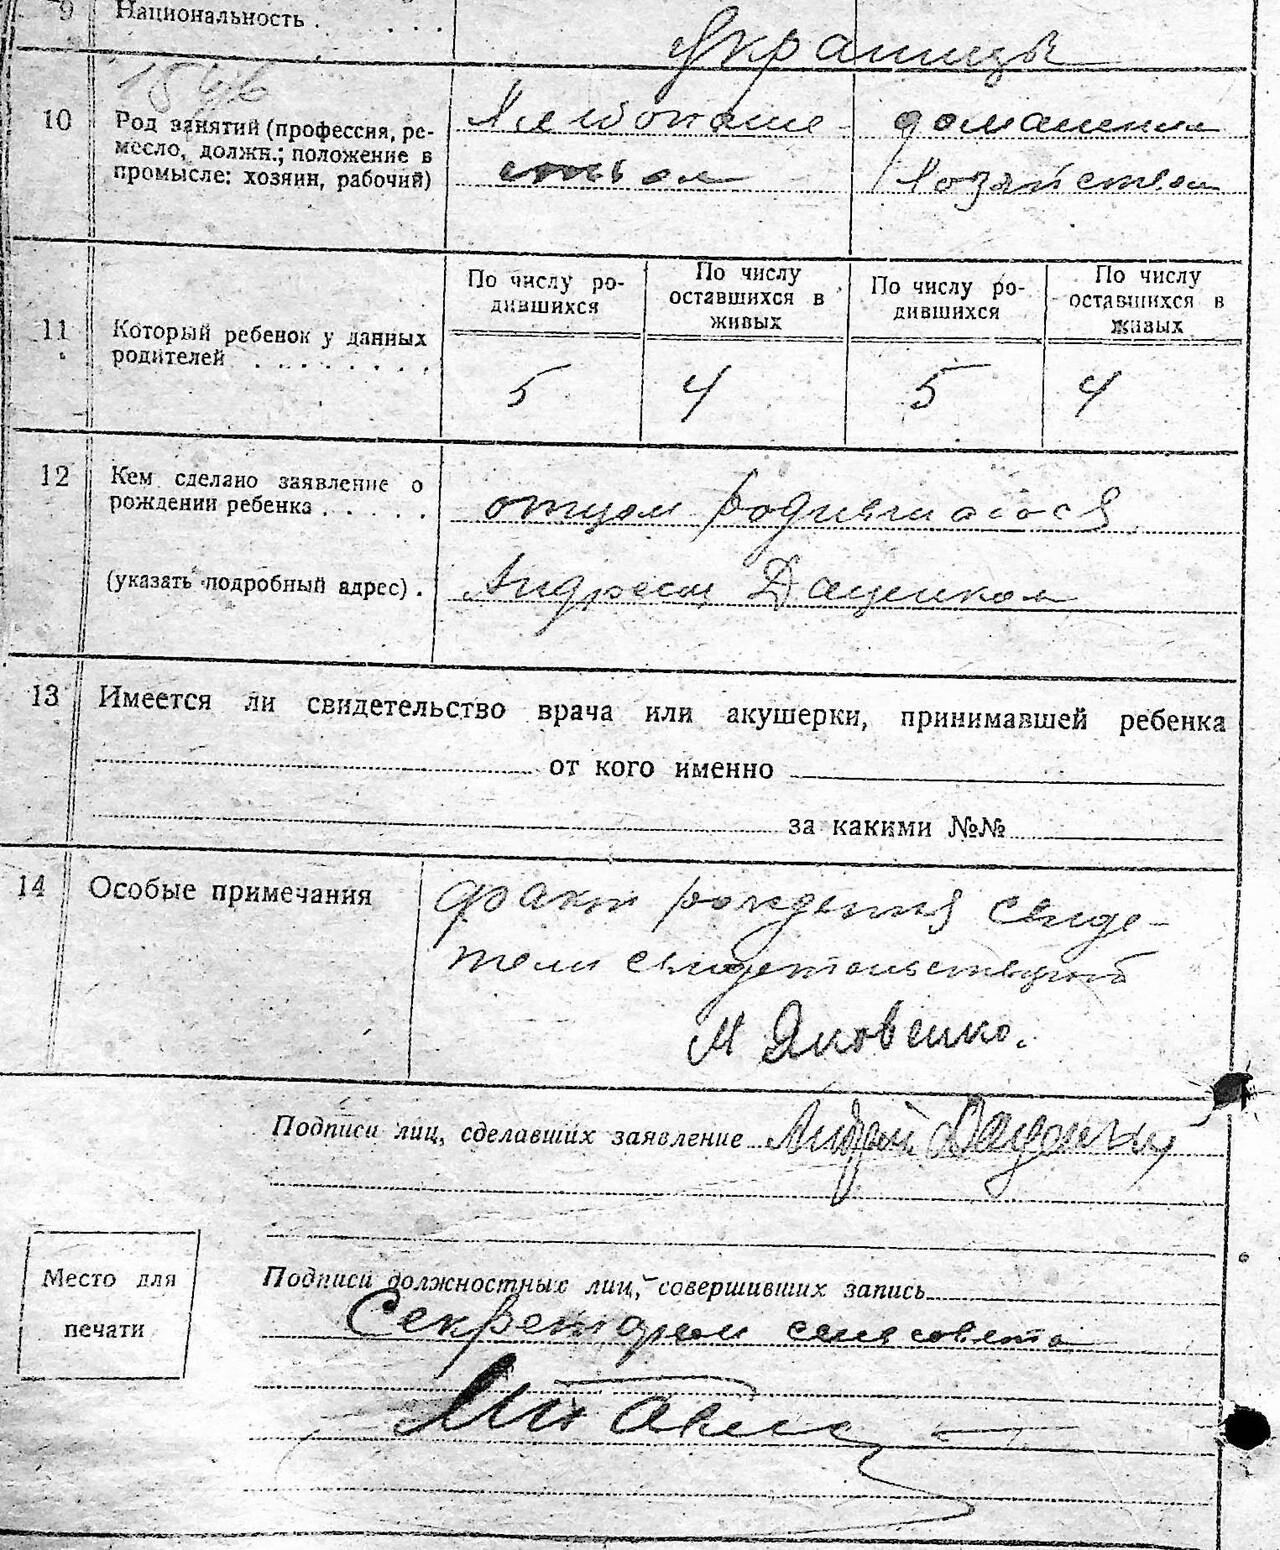 9 Национальность . . . . .
Украинцы
1546
10 Род занятий (профессия, ре-
месло, должн.; положение в
промысле: хозяин, рабочий)
Хлебопаше-
ством
домашним
хозяйством
11 Который ребенок у данных
родителей . . . . . . . .
По числу ро-
дившихся
По числу
оставшихся в
живых
По числу ро-
дившихся
По числу
оставшихся в
живых
5 4 5 4
12 Кем сделано заявление о
рождении ребенка . . . . .
(указать подробный адрес) .
отцом родившагося
Андреем Даценком
13 Имеется ли свидетельство врача или акушерки, принимавшей ребенка
от кого именно
за какими №№
14 Особые примечания
факт рождения свиде-
тели
М Яковенко.
Подписи лиц, сделавших заявление Андрей
Место для
печати
Подписи должностных лиц, совершивших запись
Секретарем сельсовета